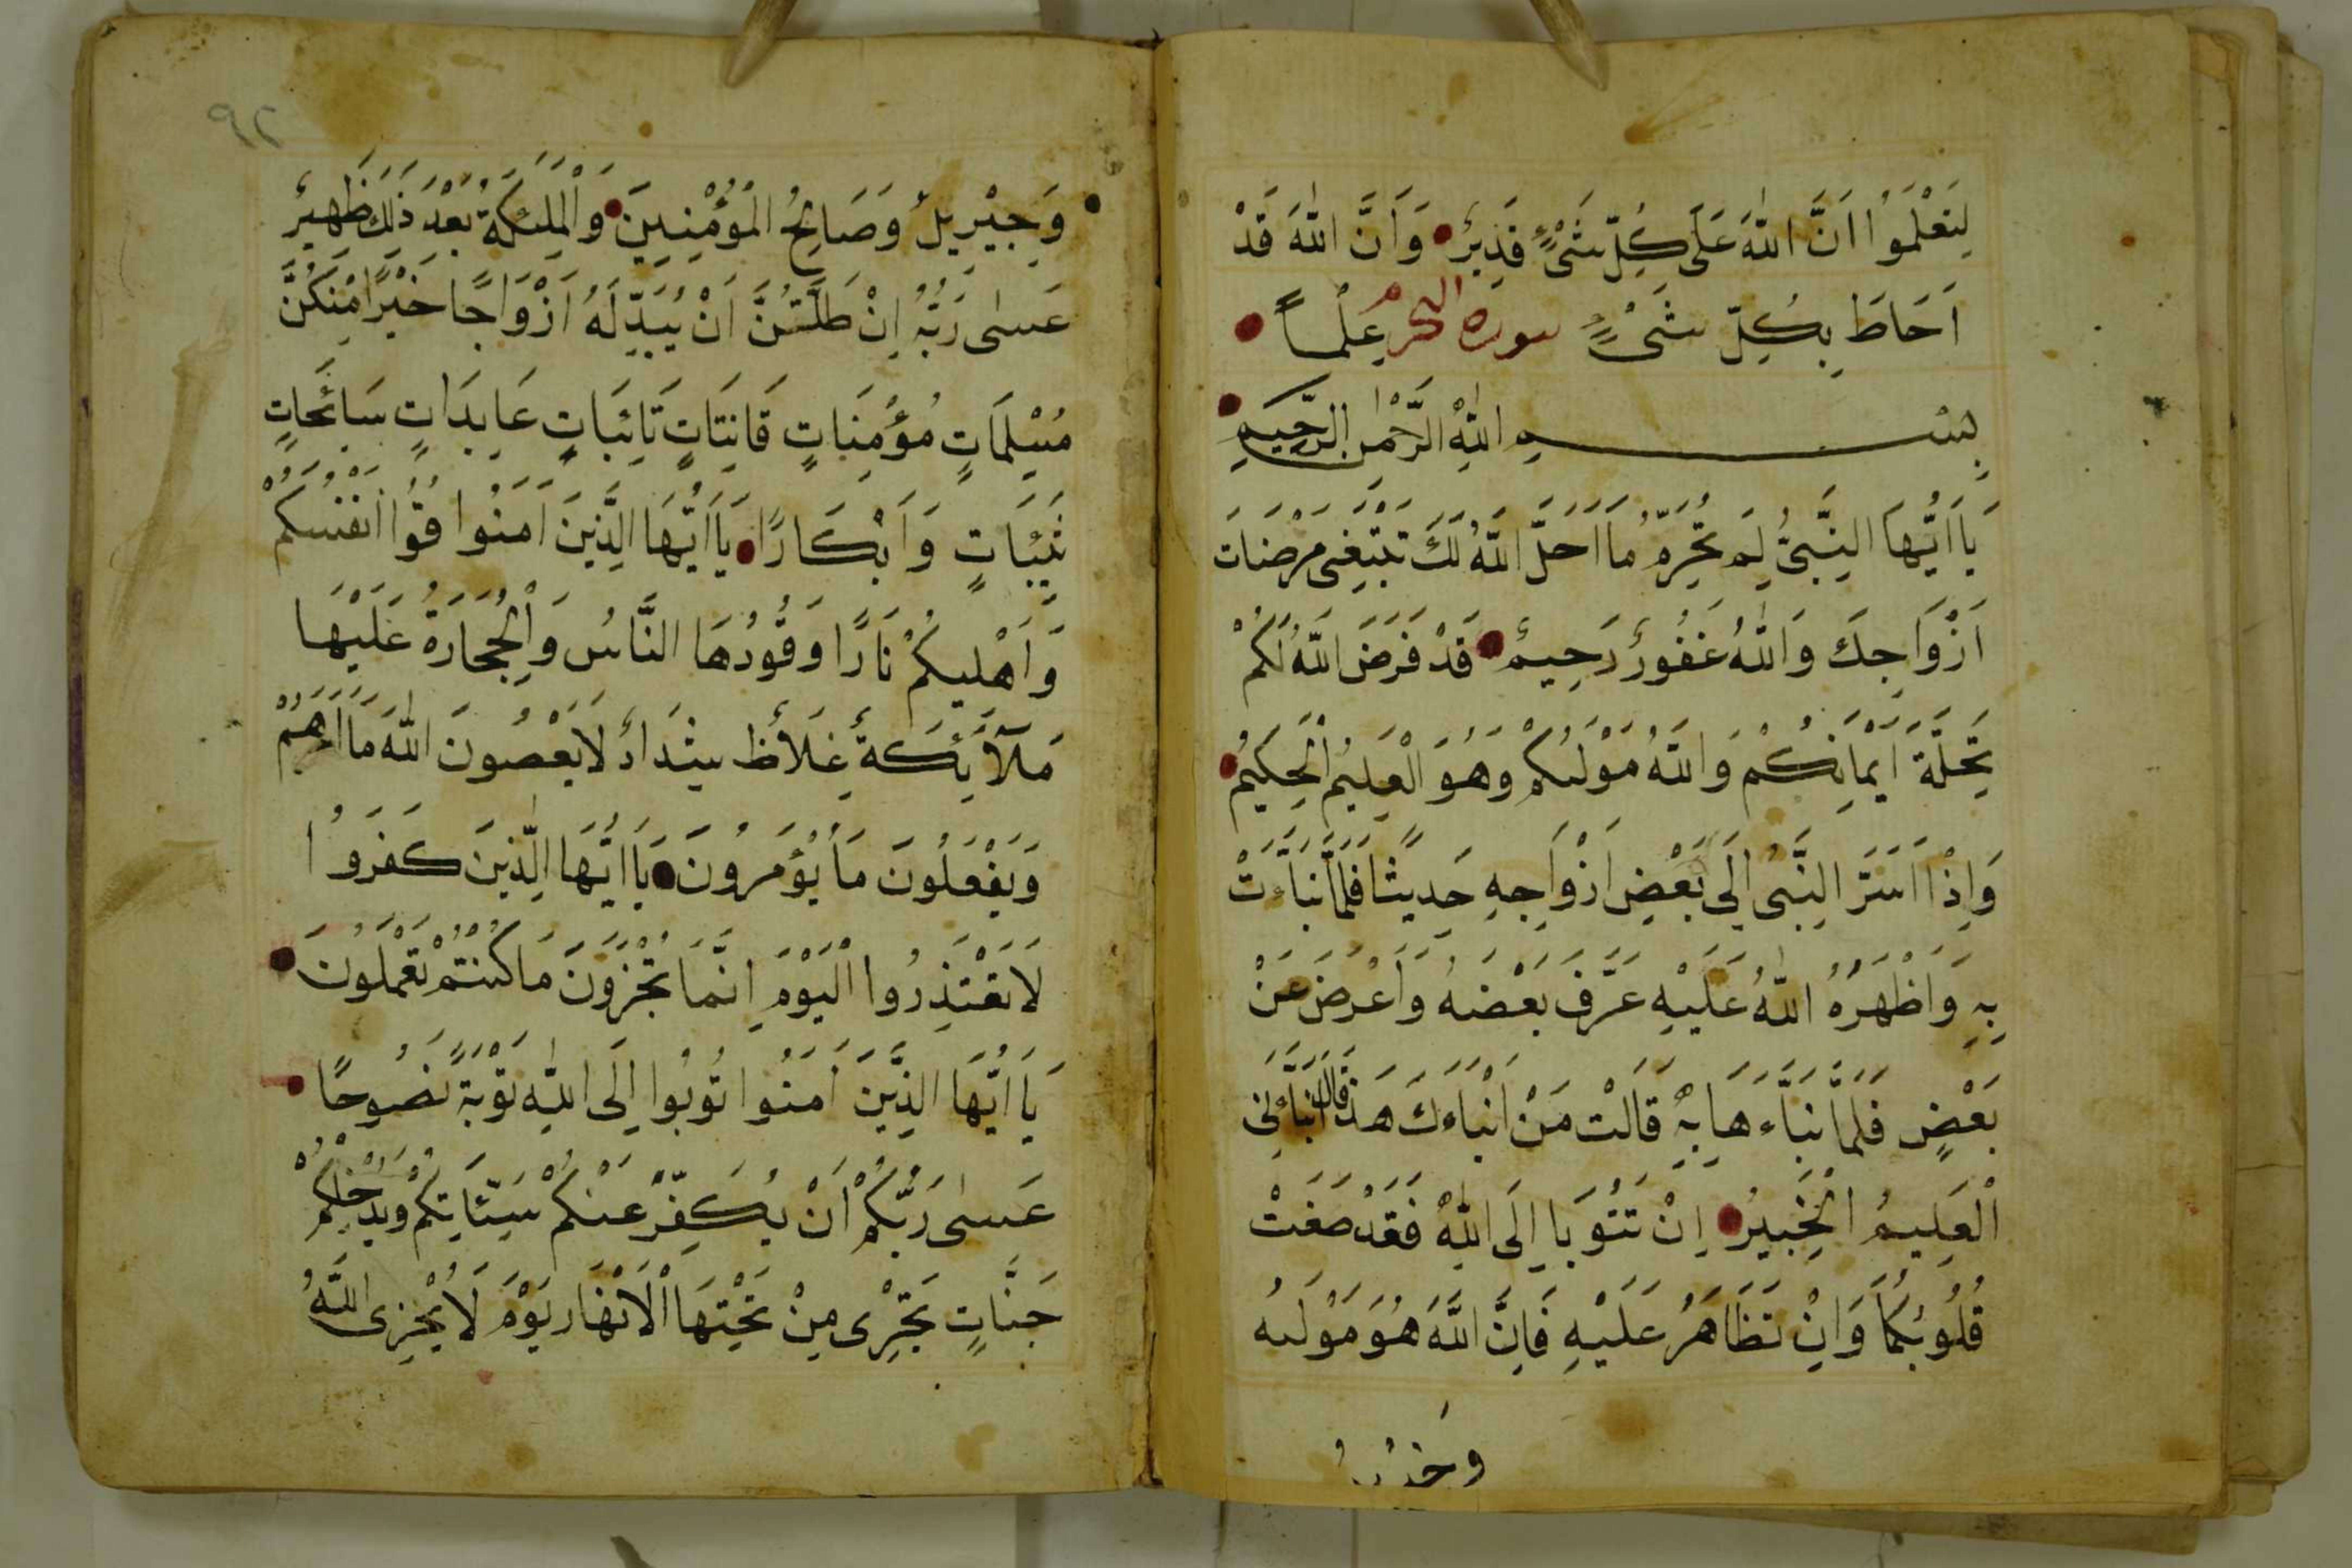 لِتَعْلَمُوا اَنَّ اللّٰهَ عَلَى كُلِّ شَىْءٍ قَدِيرٌ وَاَنَّ اللّٰهَ قَدْ
اَحَاطَ بِكُلِّ شَىْءٍ عِلْماً سورة التحرم
بِسْمِ اللّٰهِ الرَّحْمٰنِ الرَّحِيمِ
يَا اَيُّهَا النَّبِىُّ لِمَ تُحَرِّمُ مَا اَحَلَّ اللّٰهُ لَكَ تَبْتَغِى مَرْضَاتَ
اَزْوَاجِكَ وَاللّٰهُ غَفُورٌ رَحِيمٌ قَدْ فَرَضَ اللّٰهُ لَكُمْ
تَحِلَّةَ اَيْمَانِكُمْ وَاللّٰهُ مَوْلٰيكُمْ وَهُوَ الْعَلِيمُ الْحَكِيمُ
وَاِذْ اَسَرَّ النَّبِىُّ اِلَى بَعْضِ اَزْوَاجِهِ حَدِيثًا فَلَمَّا نَبَّاَتْ
بِهِ وَاَظْهَرَهُ اللّٰهُ عَلَيْهِ عَرَّفَ بَعْضَهُ وَاَعْرَضَ عَنْ
بَعْضٍ فَلَمَّا نَبَّاَءهَا بِهِ قَالَتْ مَنْ اَنْبَاَءكَ هَذَا قَالَ نَبَّاَنِىَ
الْعَلِيمُ الْخَبِيرُ اِنْ تَتُوبَا اِلَى اللّٰهِ فَقَدْ صَغَتْ
قُلُوبُكُمَا وَاِنْ تَظَاهَرَ عَلَيْهِ فَاِنَّ اللّٰهَ هُوَ مَوْلٰيهُ
٩٢
وَجِبْرِيلُ وَصَالِحُ الْمُؤْمِنِينَ وَالْمَلٰئِكَةُ بَعْدَ ذَلِكَ ظَهِيرٌ
عَسٰى رَبُّهُ اِنْ طَلَّقَكُنَّ اَنْ يُبَدِّلَهُ اَزْوَاجًا خَيْرًا مِنْكُنَّ
مُسْلِمَاتٍ مُؤْمِنَاتٍ قَانِتَاتٍ تَائِبَاتٍ عَابِدَاتٍ سَائِحَاتٍ
ثَيِّبَاتٍ وَاَبْكَارًا يَا اَيُّهَا الَّذِينَ اَمَنُوا قُوا اَنْفُسَكُمْ
وَاَهْلِيكُمْ نَارًا وَقُودُهَا النَّاسُ وَالْحِجَارَةُ عَلَيْهَا
مَلَآئِكَةٌ غِلَاظٌ شِدَادٌ لَا يَعْصُونَ اللّٰهَ مَا اَمَرَهُمْ
وَيَفْعَلُونَ مَا يُؤْمَرُونَ يَا اَيُّهَا الَّذِينَ كَفَرُوا
لَا تَعْتَذِرُوا الْيَوْمَ اِنَّمَا تُجْزَوْنَ مَا كُنْتُمْ تَعْمَلُونَ
يَا اَيُّهَا الَّذِينَ اَمَنُوا تُوبُوا اِلَى اللّٰهِ تَوْبَةً نَصُوحًا
عَسٰى رَبُّكُمْ اَنْ يُكَفِّرَ عَنْكُمْ سَيِّئَاتِكُمْ وَيُدْخِلَكُمْ
جَنَّاتٍ تَجْرِى مِنْ تَحْتِهَا الْاَنْهَارُ يَوْمَ لَا يُخْزِى اللّٰهُ